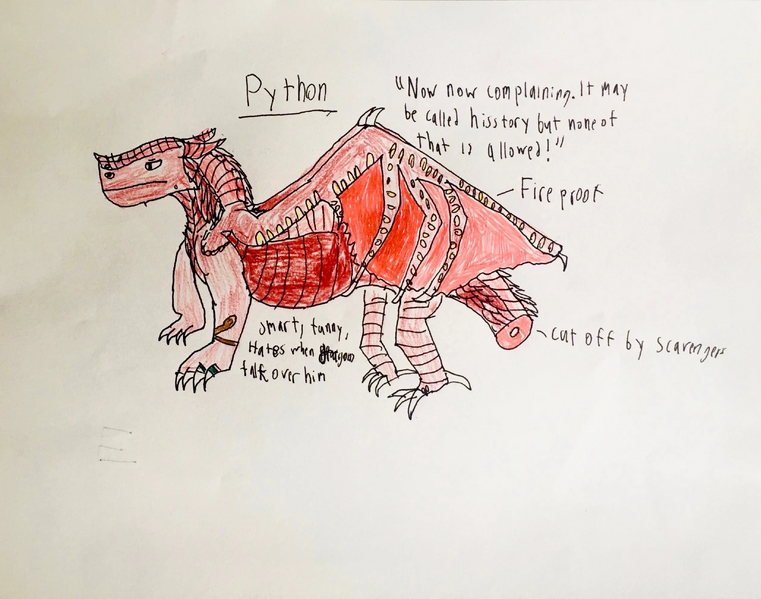 Python
"Now now complaining. It may
be called hisstory but none of
that is allowed!"
Fire proof
cut off by scavengers
smart, funny,
Hates when you
talk over him